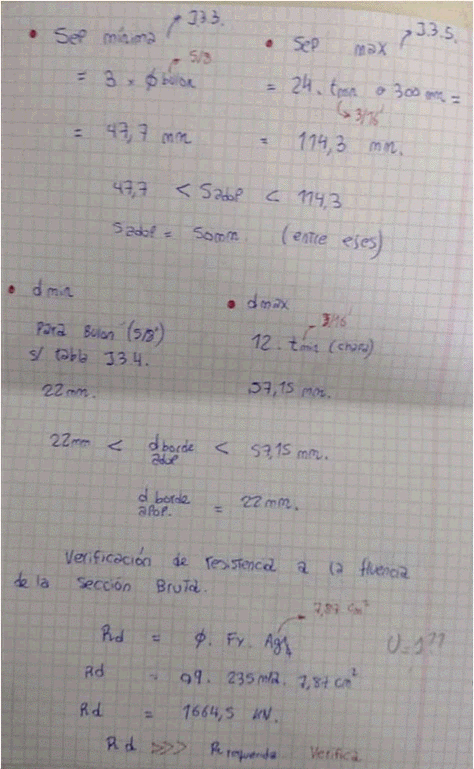 • Sep mínima ↗ J.3.3.
= 3 × ∅ bulon → 5/8
= 47,7 mm
• Sep max ↗ J.3.5.
= 24. tmin o 300 mm =
↳ 3/16
= 114,3 mm.
47,7 < Sadop < 114,3
Sadop = 50mm. (entre ejes)
• d min
Para Bulon (5/8")
s/ tabla J.3.4.
22 mm.
• dmax
3/16
12. tmin (chapa)
57,15 mm.
22 mm < d borde adop < 57,15 mm.
d borde adop. = 22 mm.
Verificación de resistencia a la fluencia
de la sección Bruta.
→ 7,87 cm²
Rd = ∅. Fy. Ag
U = 1??
Rd = 0,9. 235 mPa. 7,87 cm²
Rd = 1664,5 kN.
Rd >>> Requerida Verifica